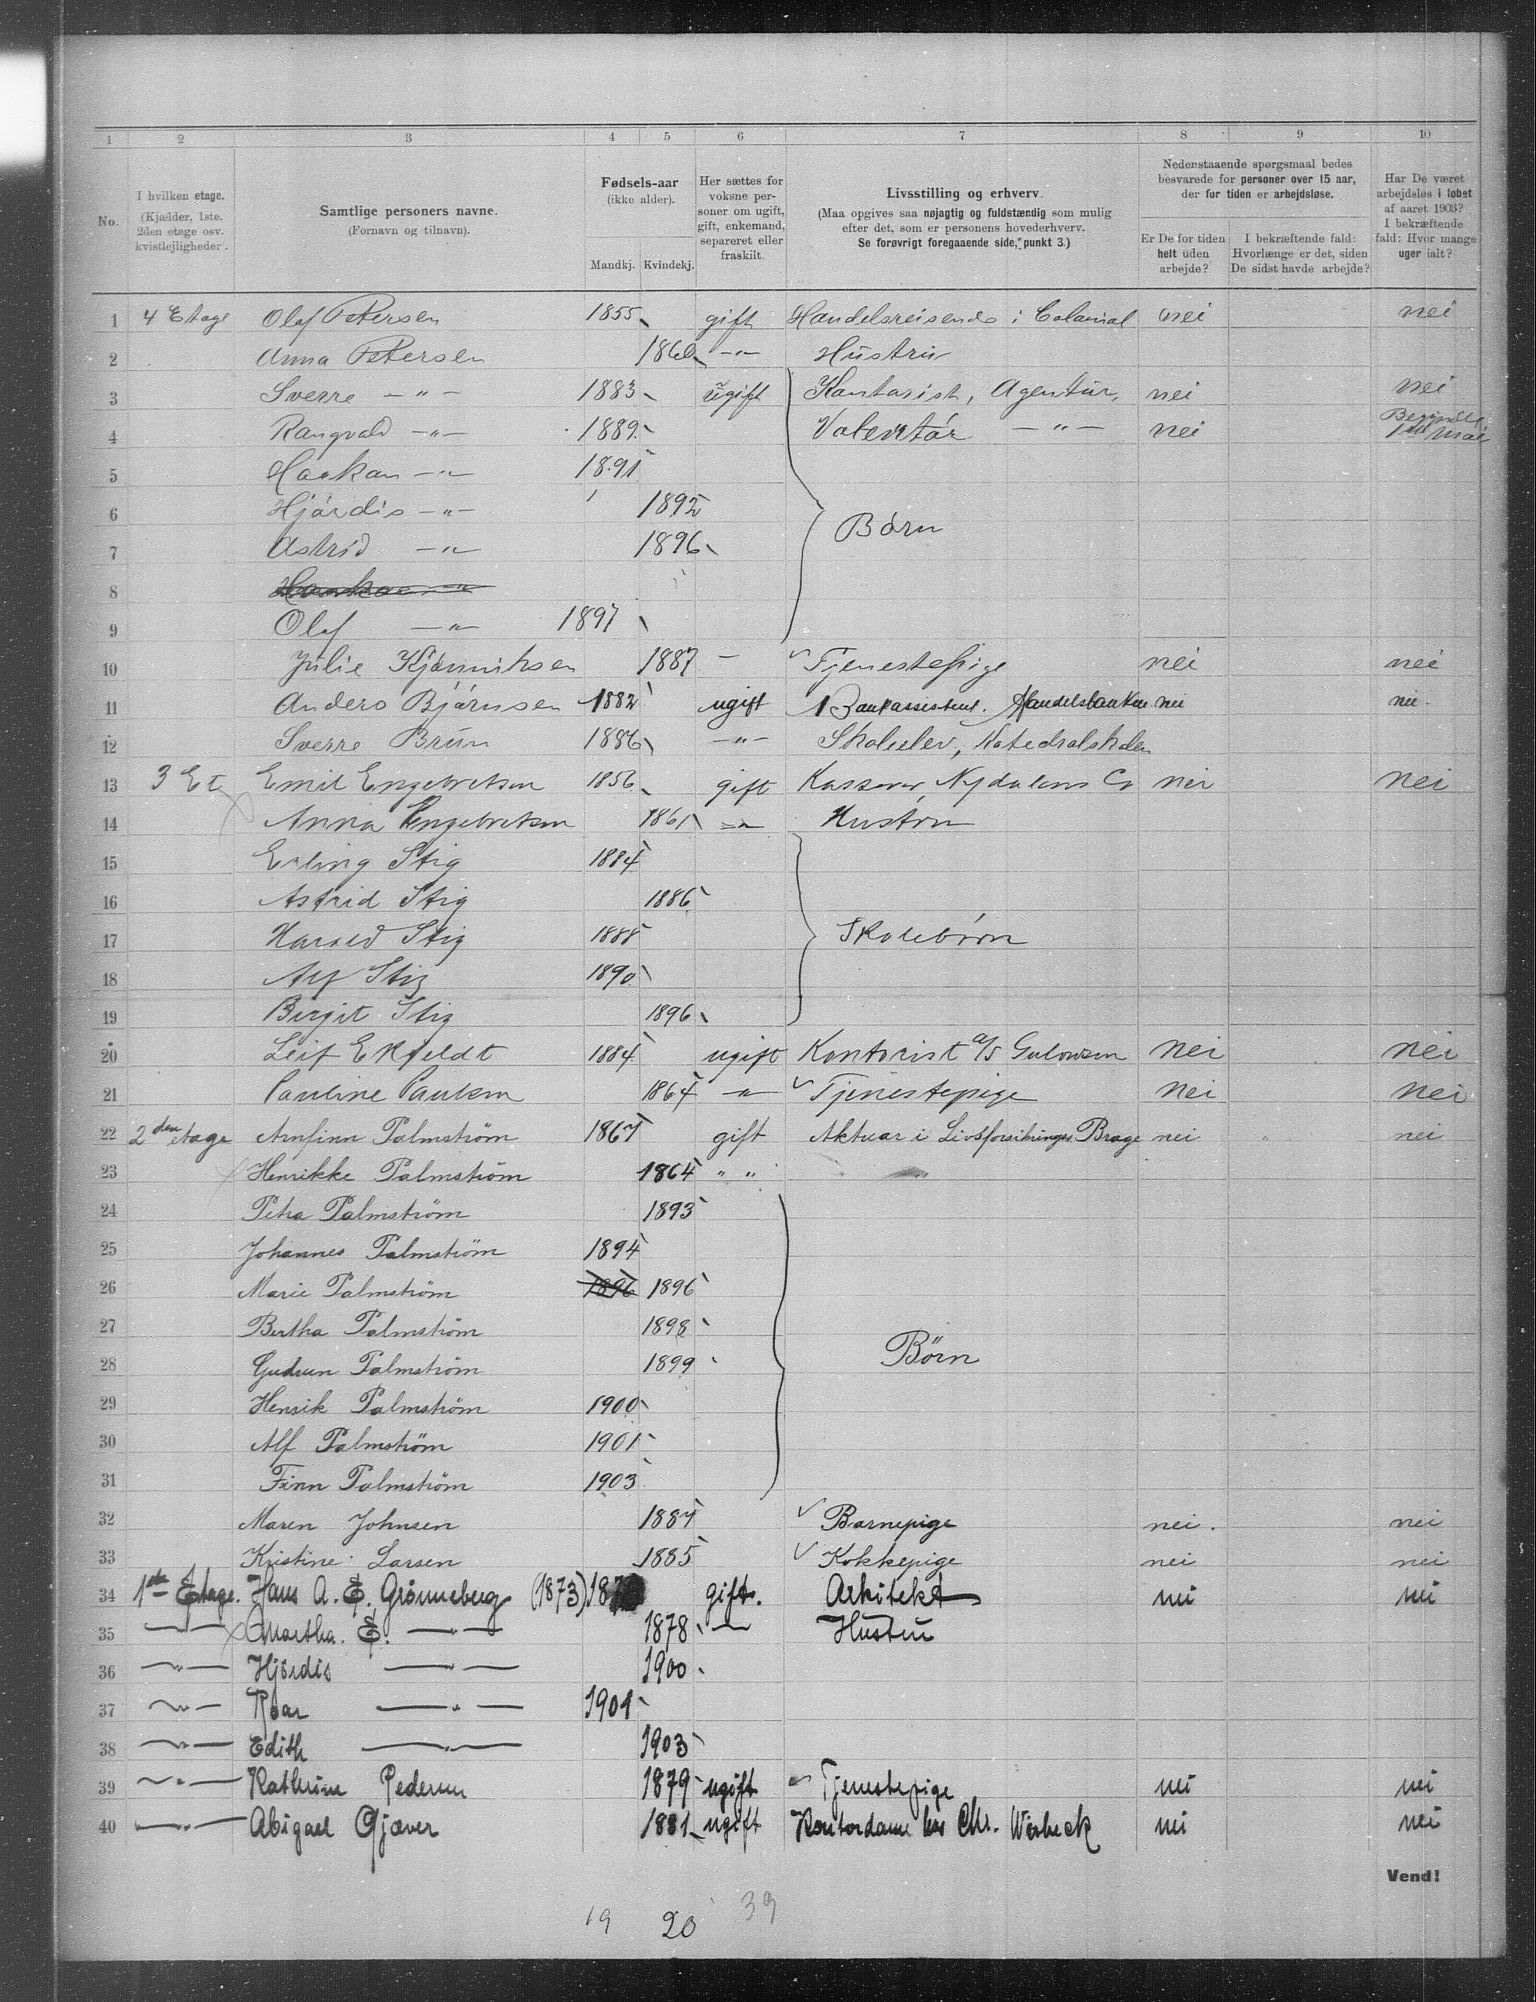 1 2 3 4 5 6 7 8 9 10
No.
I hvilken etage.
(Kjælder, 1ste.
2den etage osv.
kvistlejligheder.
Samtlige personers navne.
(Fornavn og tilnavn).
Fødsels-aar
(ikke alder).
Mandkj. Kvindekj.
Her sættes for
voksne per-
soner om ugift,
gift, enkemand,
separeret eller
fraskilt.
Livsstilling og erhverv.
(Maa opgives saa nøjagtig og fuldstændig som mulig
efter det, som er personens hovederhverv.
Se forøvrigt foregaaende side, punkt 3.)
Nedenstaaende spørgsmaal bedes
besvarede for personer over 15 aar,
der for tiden er arbejdsløse.
Er De for tiden
helt uden
arbejde?
I bekræftende fald:
Hvorlænge er det, siden
De sidst havde arbejde?
Har De været
arbejdsløs i løbet
af aaret 1903?
I bekræftende
fald: Hvor mange
uger ialt?
1 4 Etage Olaf Petersen 1855 gift Handelsreisende i Colonial nei nei
2 Anna Petersen 1860 -"- Hustru
3 Sverre -"- 1883 ugift Kontorist, Agentur, nei nei
4 Rangvald -"- 1889 Volentør -"- nei Begyndte 1ste Mai
5 Haakon -"- 1891
6 Hjørdis -"- 1892
7 Astrid -"- 1896 Børn
8 -"-
9 Olaf -"- 1897
10 Julie 1887 - Tjenestepige nei nei
11 Anders Bjørnsen 1882 ugift Bankassistent. Handelsbanken nei nei.
12 Sverre Brun 1886 -"- Skoleelev, Katedralskolen
13 3 Et Emil Engebretsen 1856 gift Kasserer Nydalens Co nei nei
14 Anna Engebretsen 1861 -"- Hustru
15 Erling Stig 1884
16 Astrid Stig 1886
17 Harald Stig 1888 Skolebørn
18 Alf Stig 1890
19 Birgit Stig 1896
20 Leif Ekfeldt 1884 ugift Kontorist a/s Gulowsen nei nei
21 Pauline Paulsen 1864 -"- Tjenestepige nei nei
22 2den etage Arnfinn Palmström 1867 gift Aktuar i Livsforsikrings Brage nei " nei
23 Henrikke Palmström 1864 " "
24 Petra Palmström 1893
25 Johannes Palmström 1894
26 Marie Palmström 1896 1896
27 Bertha Palmström 1898
28 Gudrun Palmström 1899 Börn
29 Henrik Palmström 1900
30 Alf Palmström 1901
31 Finn Palmström 1903
32 Maren Johnsen 1887 Barnepige nei. nei
33 Kristine Larsen 1885 Kokkepige nei nei
34 1ste Etage. Hans A. E. Grønneberg (1873) gift. Arkitekt nei nei
35 -"- Martha. E. -"- 1878 -"- Hustru
36 -"- Hjørdis -"- 1900
37 -"- Roar -"- 1901
38 -"- Edith -"- 1903
39 -"- Kathrine Pedersen 1879 ugift Tjenestepige nei nei
40 -"- Abigael Gjæver 1881 ugift Kontordame hos Chr. Wisbeck nei nei
Vend!
19 20 39